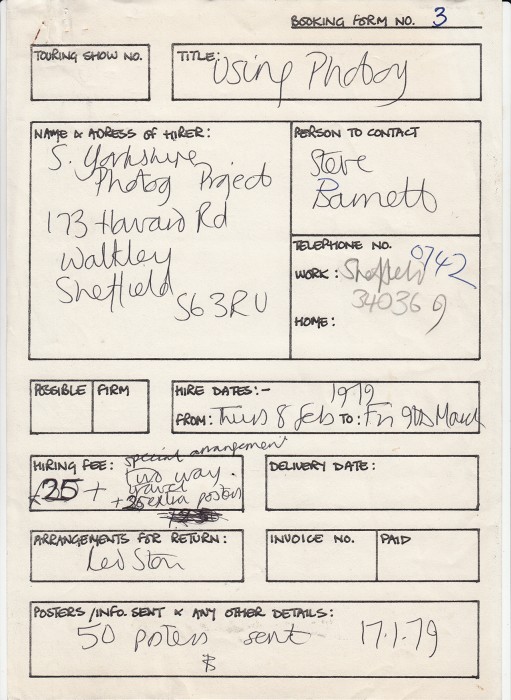 BOOKING FORM NO. 3
TOURING SHOW NO.
TITLE: Using Photog
NAME & ADRESS OF HIRER:
S. Yorkshire
Photog Project
173 Havard Rd
Walkley
Sheffield
S6 3RU
PERSON TO CONTACT
Steve
Barnett
TELEPHONE NO.
0742
WORK: Sheffield
340369
HOME:
POSSIBLE FIRM
HIRE DATES:-
1979
FROM: Thurs 8 Feb TO: Fri 9th March
HIRING FEE: special arrangement
£25 + two way
travel
+ 25 extra posters
DELIVERY DATE:
ARRANGEMENTS FOR RETURN:
Red Star
INVOICE NO. PAID
POSTERS/INFO. SENT & ANY OTHER DETAILS:
50 posters sent 17.1.79